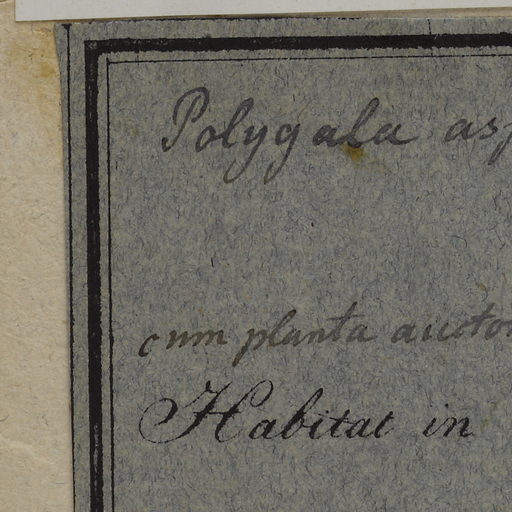 Polygala asp
cum planta auctor
Habitat in